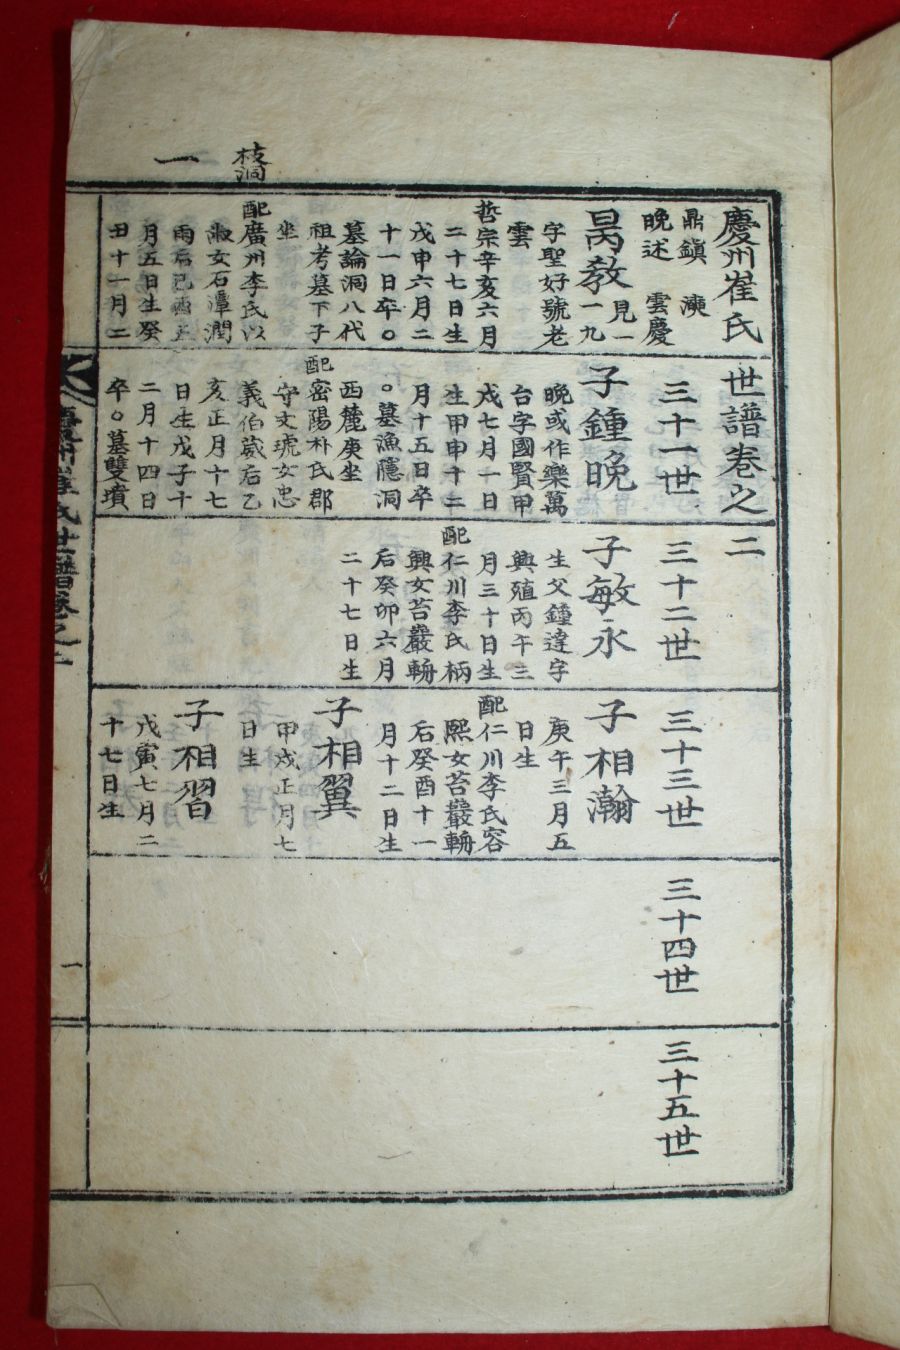 枝洞
一
慶州崔氏世譜卷之二
鼎鎭 演
晩述 雲慶
三十一世
三十二世
三十三世
三十四世
三十五世
昺教 見一
一九
字聖好號老
雲
哲宗辛亥六月
二十七日生
戊申六月二
十一日卒○
墓論洞八代
祖考墓下子
坐
配廣州李氏以
淑女石潭潤
雨后己酉正
月五日生癸
田十一月二
子鍾晩
晩或作樂萬
台字國賢甲
戌七月一日
生甲申十二
月十五日卒
○墓漁隱洞
西麓庚坐
配密陽朴氏郡
守文琥女忠
義伯葳后乙
亥正月十七
日生戊子十
二月十四日
卒○墓雙墳
子敏永
生父鍾達字
興殖丙午三
月三十日生
配仁川李氏柄
興女苔巖輈
后癸卯六月
二十七日生
子相瀚
庚午三月五
日生
配仁川李氏容
熙女苔巖輈
后癸酉十一
月十二日生
子相翼
甲戌正月七
日生
子相習
戊寅七月二
十七日生
慶州崔氏世譜卷之二
一